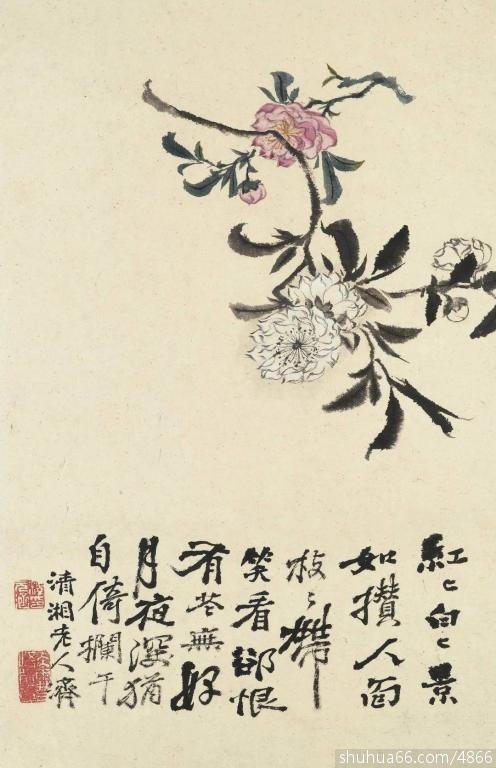 紅〻白〻景
如攢人面
枝〻帶
笑看卻恨
有花無好
月夜深猶
自倚欄干
清湘老人濟
shuhua66.com/4866